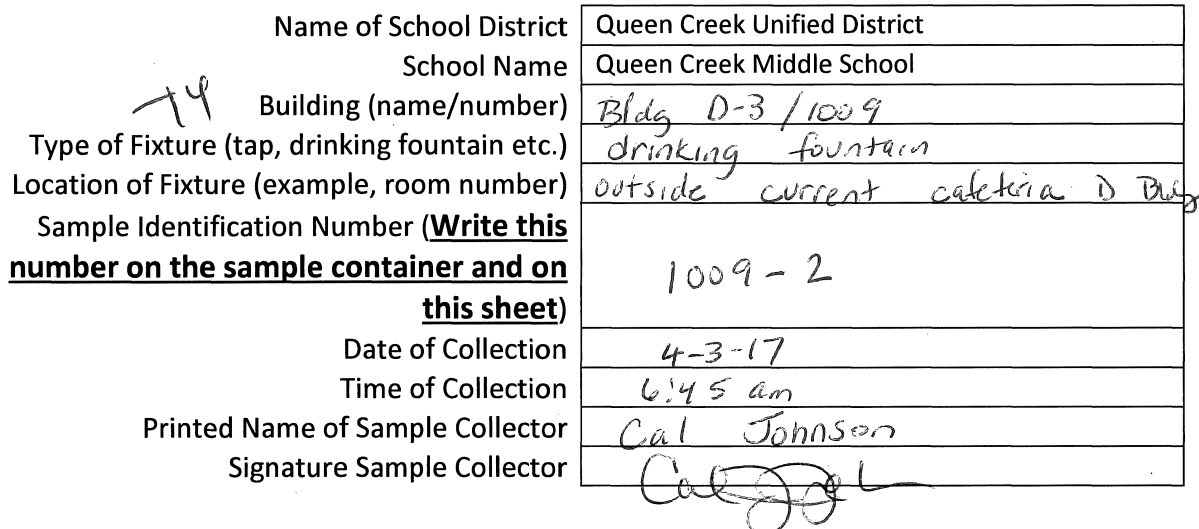 Name of School District Queen Creek Unified District
School Name Queen Creek Middle School
Building (name/number) Bldg D-3 / 1009
Type of Fixture (tap, drinking fountain etc.) drinking fountain
Location of Fixture (example, room number) outside current cafeteria D Bldg
Sample Identification Number (Write this
number on the sample container and on 1009-2
this sheet)
Date of Collection 4-3-17
Time of Collection 6:45 am
Printed Name of Sample Collector Cal Johnson
Signature Sample Collector